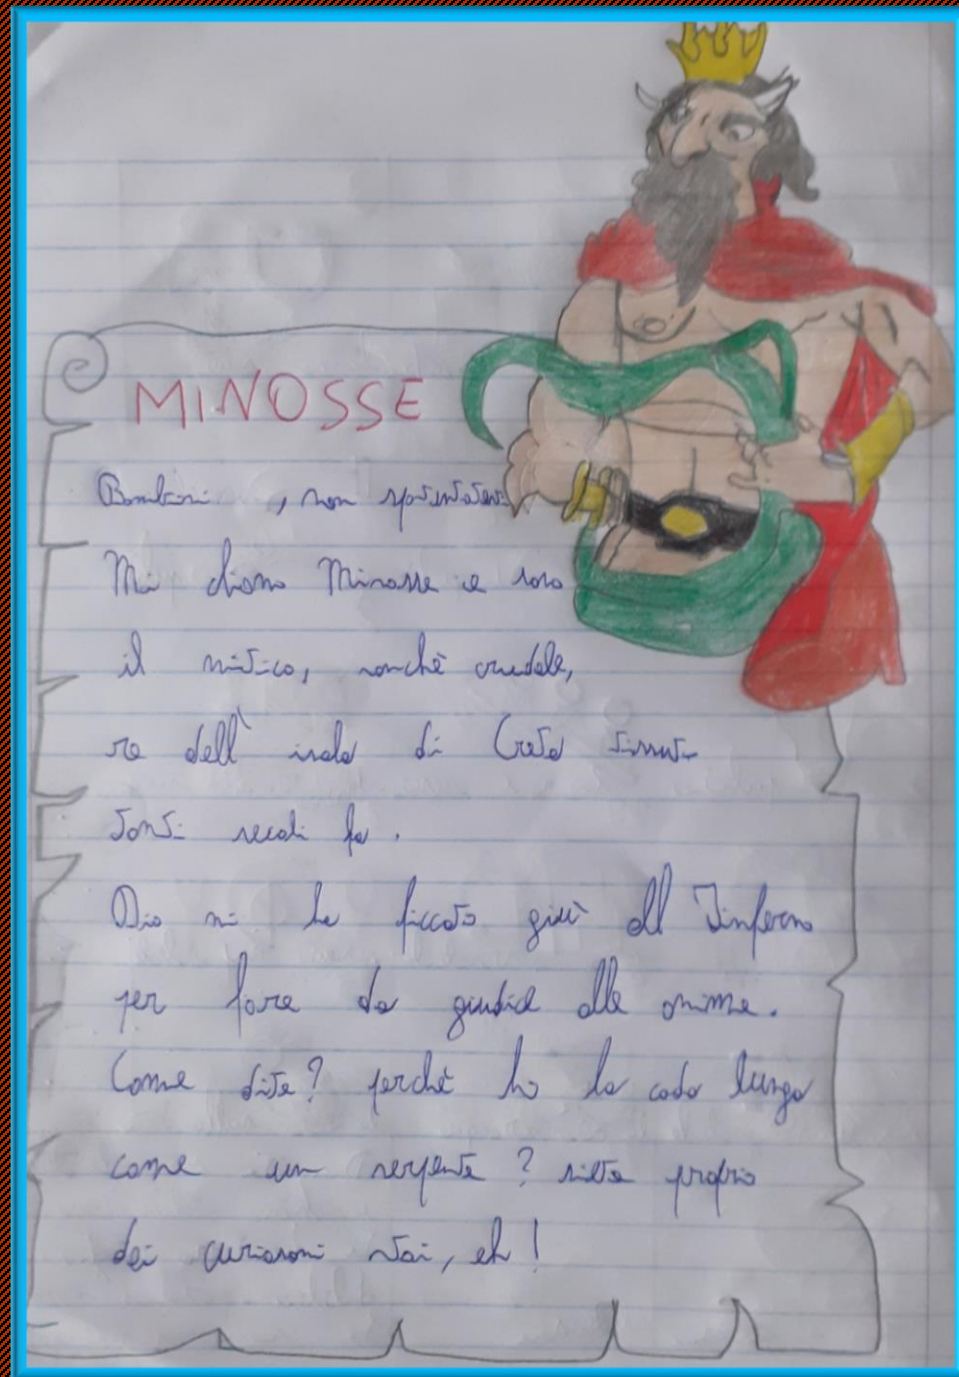 MINOSSE
Bambini , non spaventatevi
Mi chiamo Minosse e sono
il mitico, nonchè crudele,
re dell' isola di Creta vissuto
tanti secoli fa .
Dio mi ha ficcato giù all Inferno
per fare da giudice alle anime .
Come dite? perchè ho la coda lunga
come un serpente ? siete proprio
dei curiosoni voi, eh !